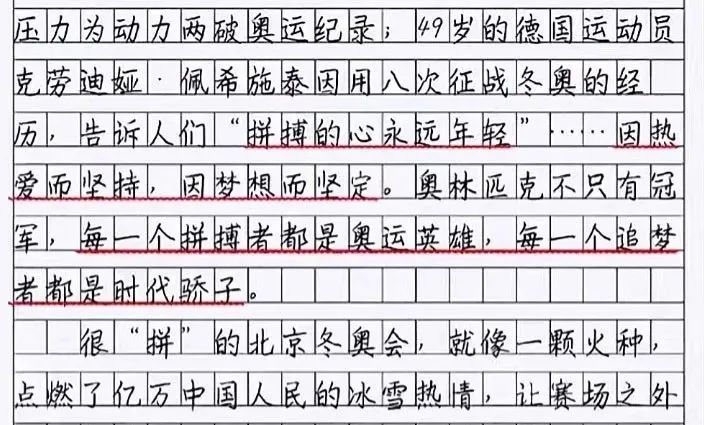 压力为动力两破奥运纪录；49岁的德国运动员
克劳迪娅·佩希施泰因用八次征战冬奥的经
历，告诉人们“拼搏的心永远年轻”……因热
爱而坚持，因梦想而坚定。奥林匹克不只有冠
军，每一个拼搏者都是奥运英雄，每一个追梦
者都是时代骄子。
很“拼”的北京冬奥会，就像一颗火种，
点燃了亿万中国人民的冰雪热情，让赛场之外